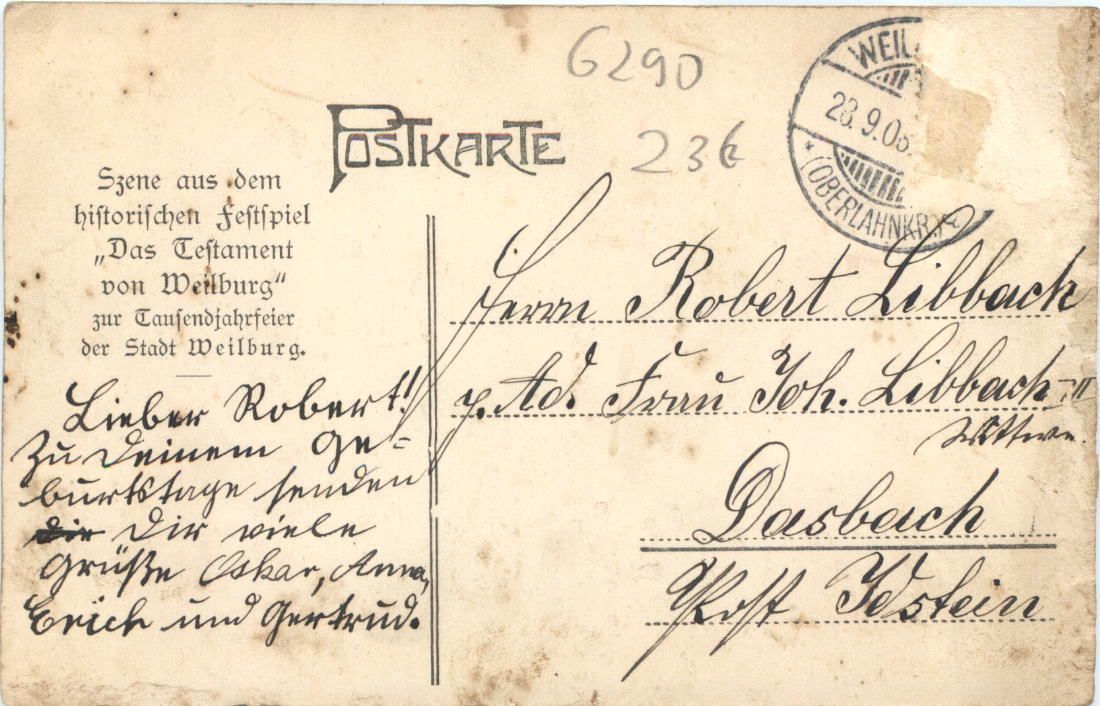 6290
23€
WEIL
28.9.06.
*(OBERLAHNKR.)*
POSTKARTE
Szene aus dem
historischen Festspiel
„Das Testament
von Weilburg“
zur Tausendjahrfeier
der Stadt Weilburg.
Lieber Robert!
Zu Deinem Ge-
burtstage senden
Dir viele
Grüße Oskar, Anna,
Erich und Gertrud.
Herrn Robert Libbach
p. Ad. Frau Joh. Libbach III
Wittwe.
Dasbach
Post Idstein